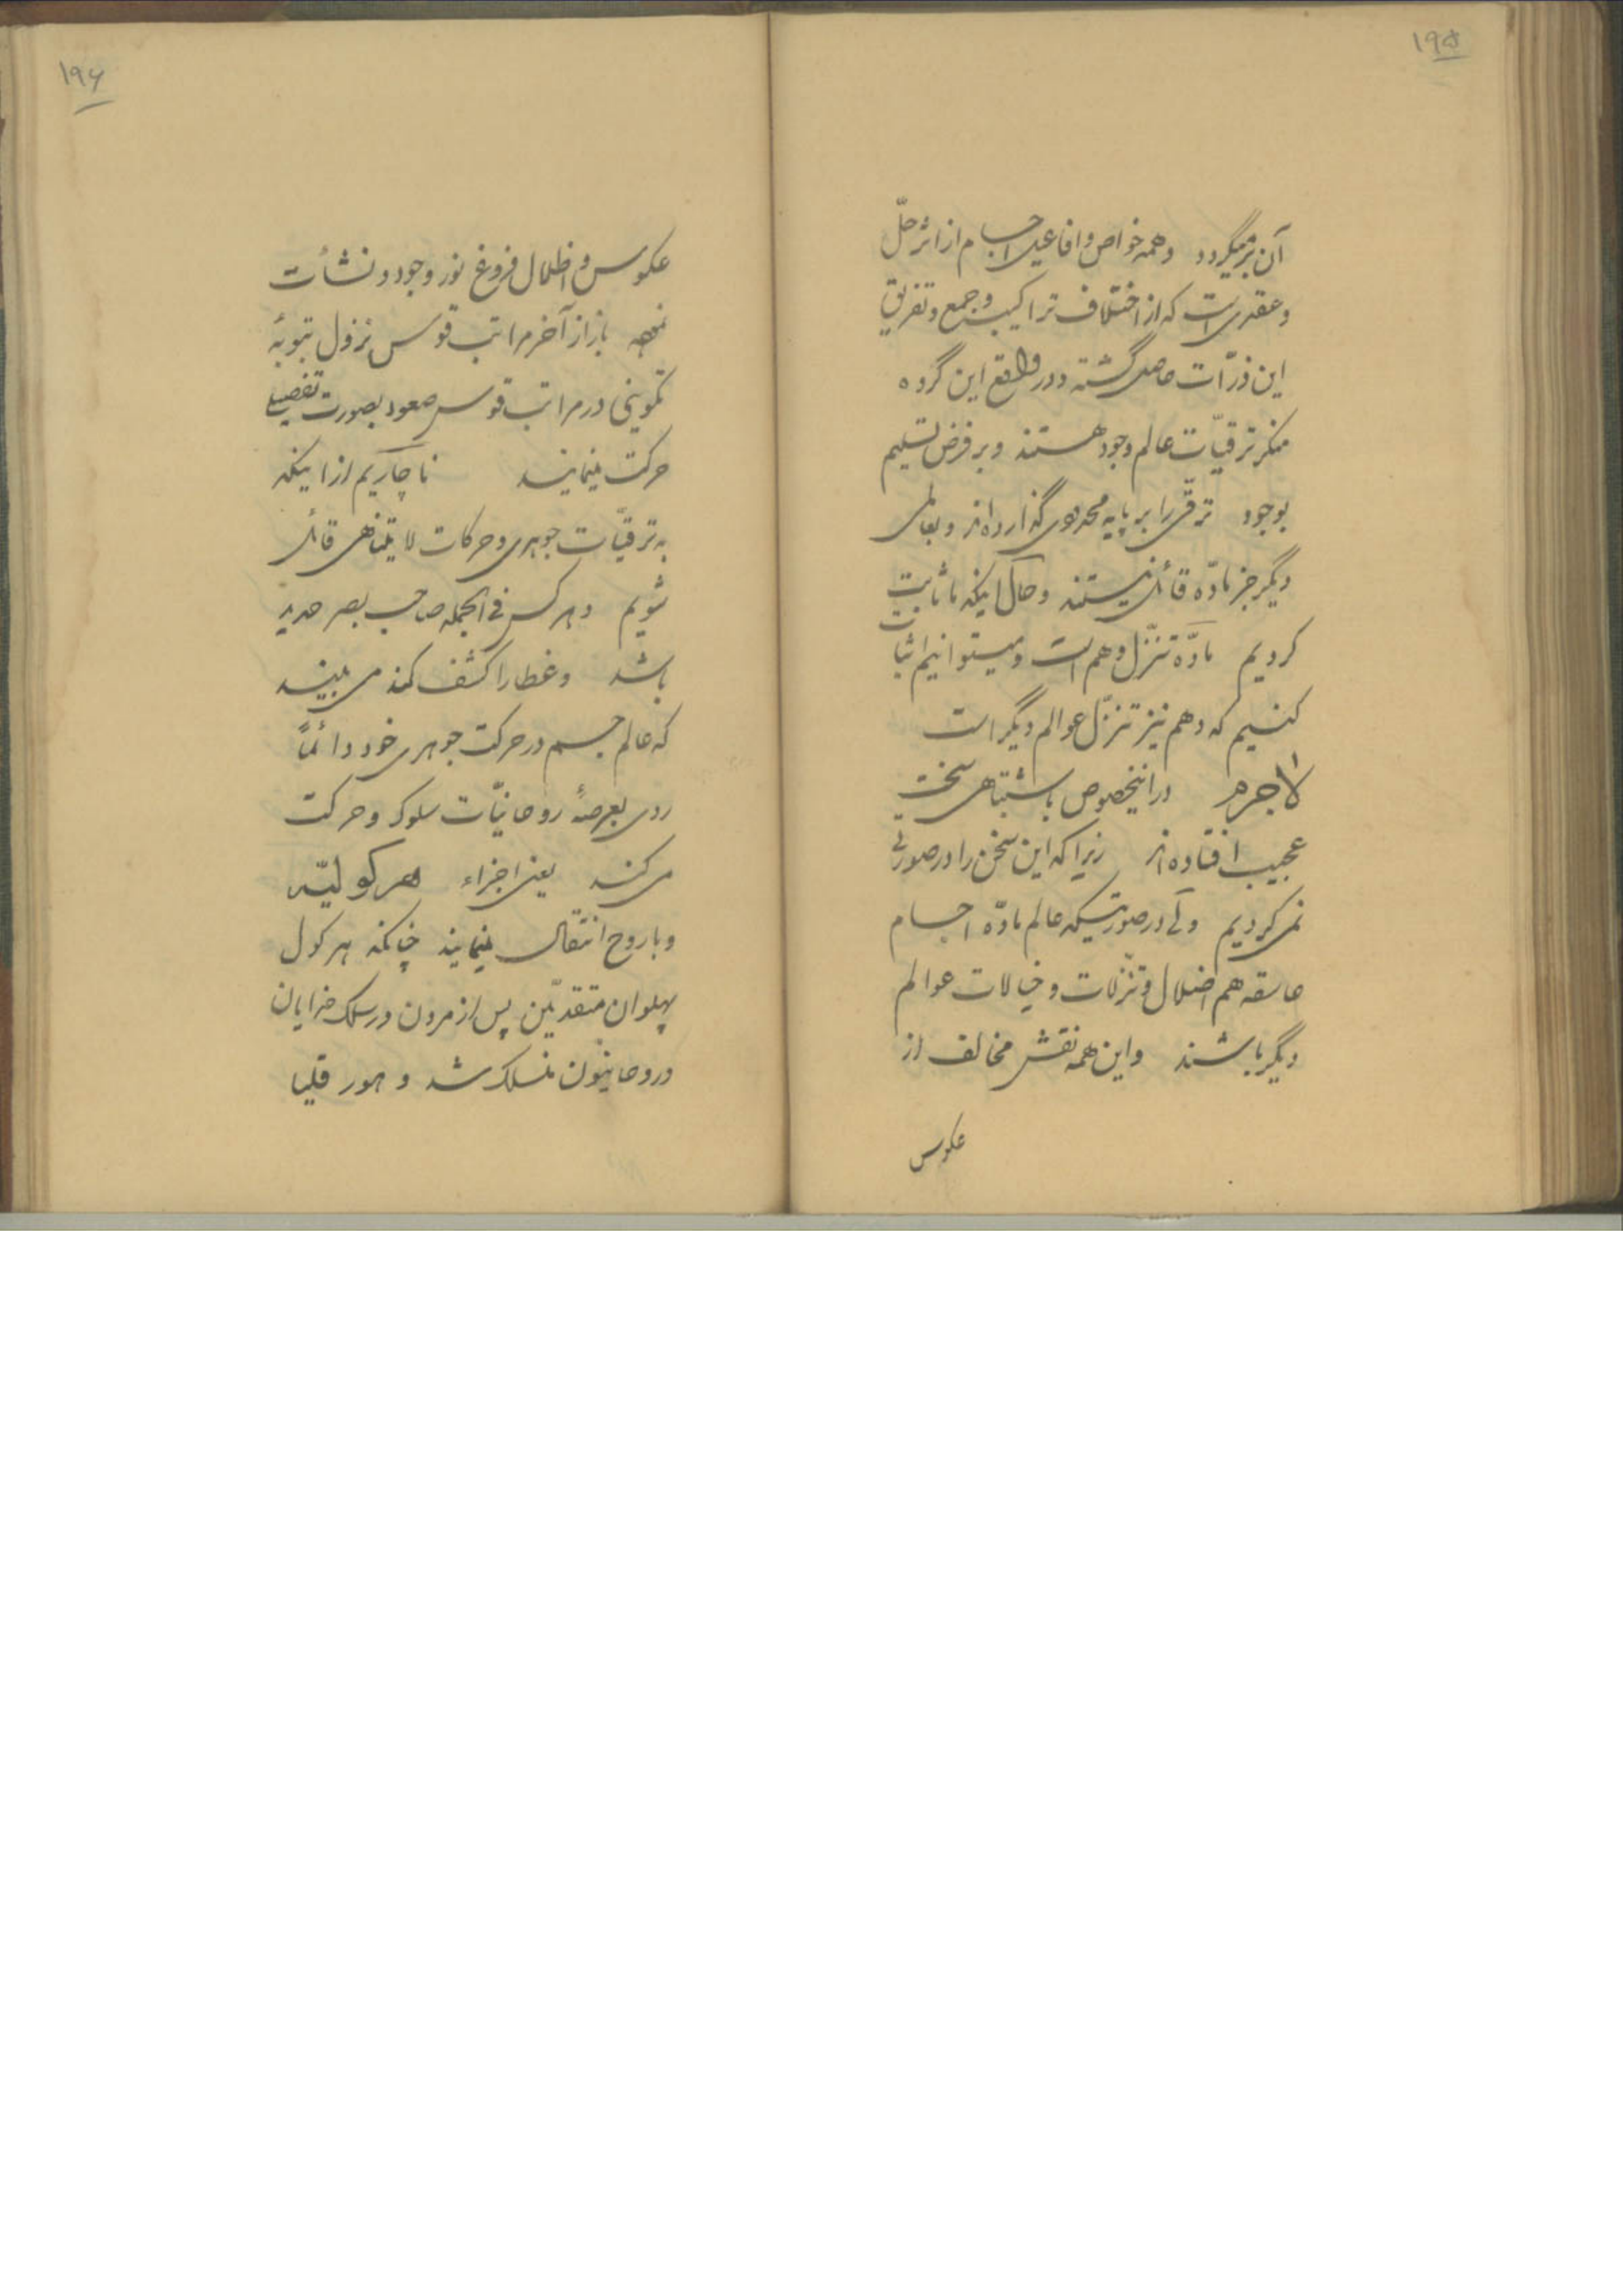 ۱۹۵
آن برمیگردد وهمه خواص وافاعیل اجسام از اثر حلّ
وعقدی است که از اختلاف تراکیب وجمع وتفریق
این ذرّات حاصل گشته ودر واقع این گروه
منکر ترقیّات عالم وجود هستند وبر فرض تسلیم
بوجود ترقّی را بر پایه محدودی گذارده‌اند وبعالمی
دیگر جز مادّه قائل نیستند وحال آنکه ما ثابت
کردیم مادّه تنزّل وهم است ومیتوانیم اثبات
کنیم که وهم نیز تنزّل عوالم دیگر است
لاجرم در اینخصوص باشتباهی سخت
عجیب افتاده‌اند زیرا که این سخن را در صورتی
نمی کردیم ولی در صورتیکه عالم مادّه اجسام
هم اضلال وتنزّلات وخیالات عوالم
دیگر باشند واین همه نقش مخالف از
عکوس
۱۹۶
عکوس واظلال فروغ نور وجود ونشأت
باز از آخر مراتب قوس نزول
تکوینی در مراتب قوس صعود بصورت تفصیلی
حرکت مینمایند ناچاریم از اینکه
به ترقیّات جوهری وحرکات لایتناهی قائل
شویم وهرکس فی الجمله صاحب بصر حدید
باشد وغطا را کشف کند می بیند
که عالم جسم در حرکت جوهری خود دائماً
روی بعرصهٔ روحانیّات سلوک وحرکت
می کند یعنی اجزاء هرکولیّه
وبا روح انتقال مینمایند چنانکه هرکول
پهلوان متقدّمین پس از مردن در سلک خدایان
وروحانیون منسلک شد وهورقلیا